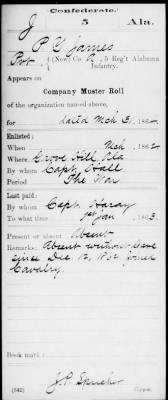 Confederate.
J 5 Ala.
P C James
Pvt, (New) Co. A, 5 Reg't Alabama
Infantry.
Appears on
Company Muster Roll
of the organization named above,
for dated Mch 31, 186
Enlisted:
When Mch, 1862
Where Grove Hill, Ala
By whom Capt. Hall
Period The War
Last paid:
By whom Capt.
To what time 1st Jan, 1863.
Present or absent Absent
Remarks: Absent without leave
since Dec. 12, 1862 joined
Cavalry.
Book mark:
(642) Copyist.